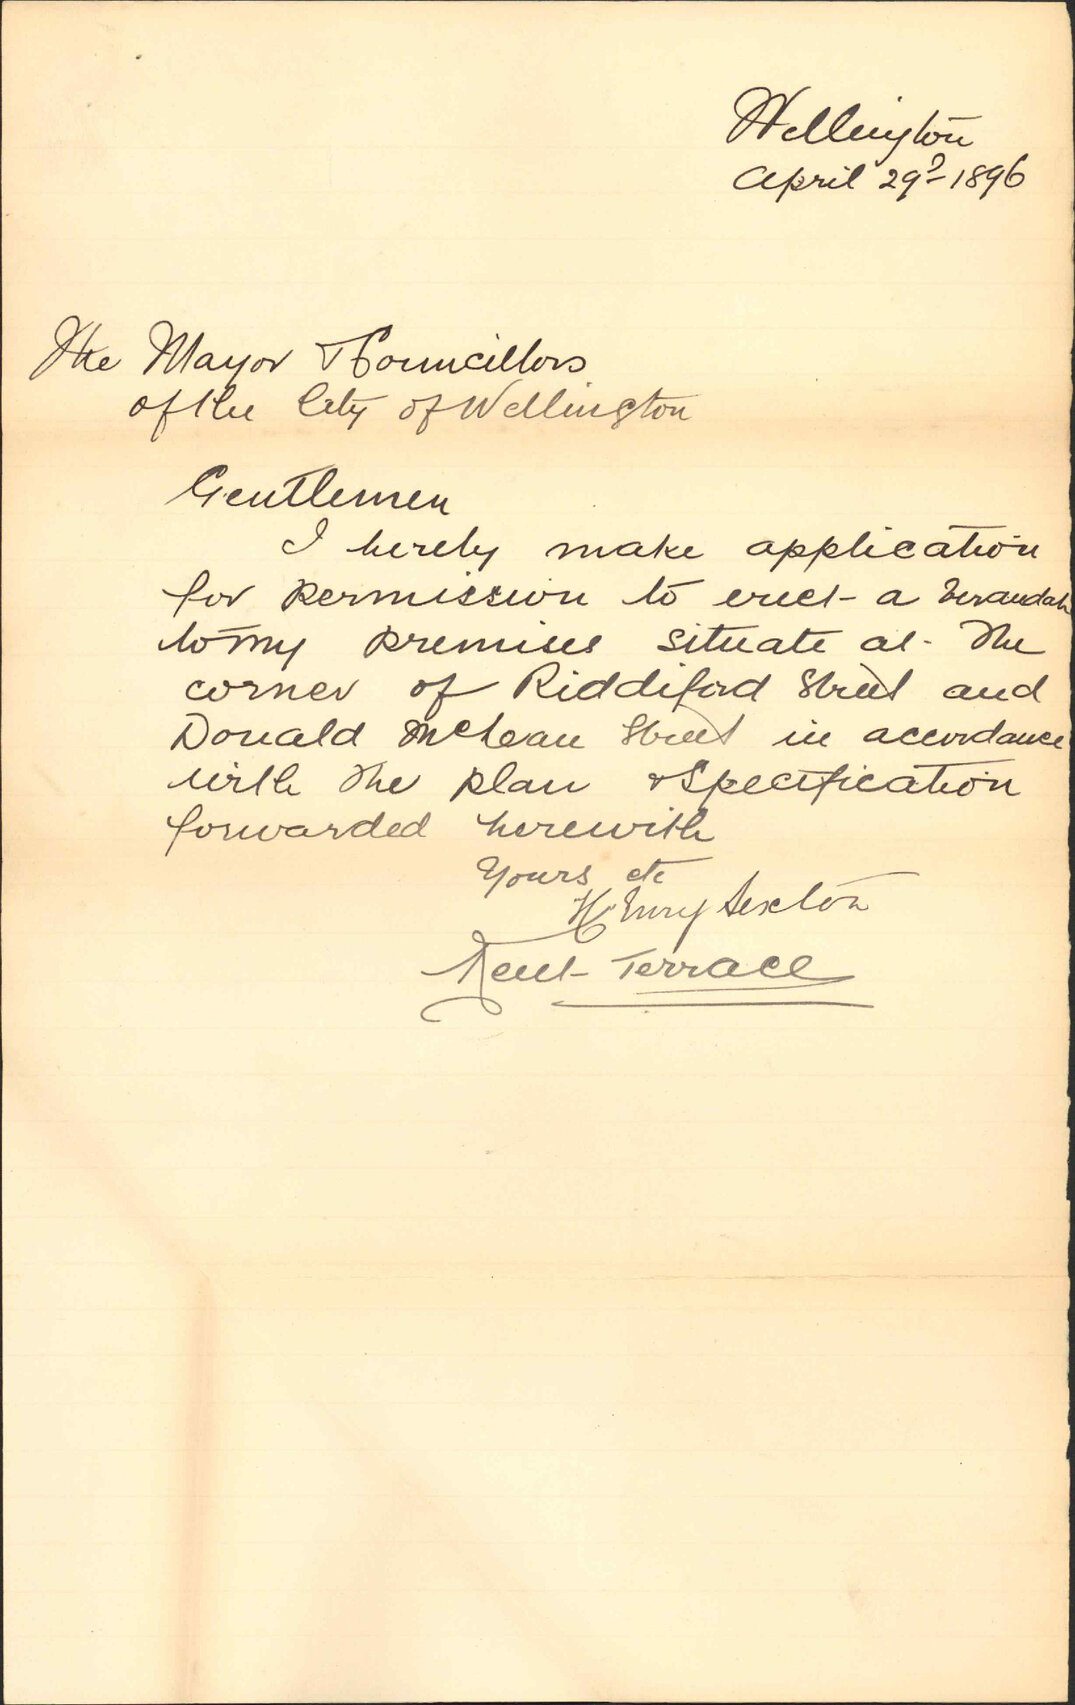 Wellington
April 29th 1896
The Mayor & Councillors
of the City of Wellington
Gentlemen
I hereby make application
for permission to erect a Verandah
to my premises situate at the
corner of Riddiford Street and
Donald McLean Street in accordance
with the plan & Specification
forwarded herewith
Yours etc
Henry Sexton
Kent Terrace